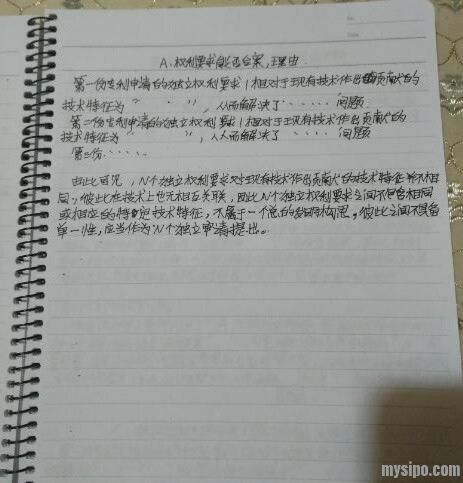 A. 权利要求能否合案,理由
第一份专利申请的独立权利要求1相对于现有技术作出贡献的
技术特征为“ · · · ”,从而解决了····· 问题.
第二份专利申请的独立权利要求1相对于现有技术作出贡献的
技术特征为“ · · · ”,从而解决了····· 问题
第三份·····
由此可见,N个独立权利要求对现有技术作出贡献的技术特征并不相
同,彼此在技术上也无相互关联,因此N个独立权利要求之间不包含相同
或相应的特定技术特征,不属于一个总的发明构思,彼此之间不具备
单一性,应当作为N个独立申请提出。
mysipo.com